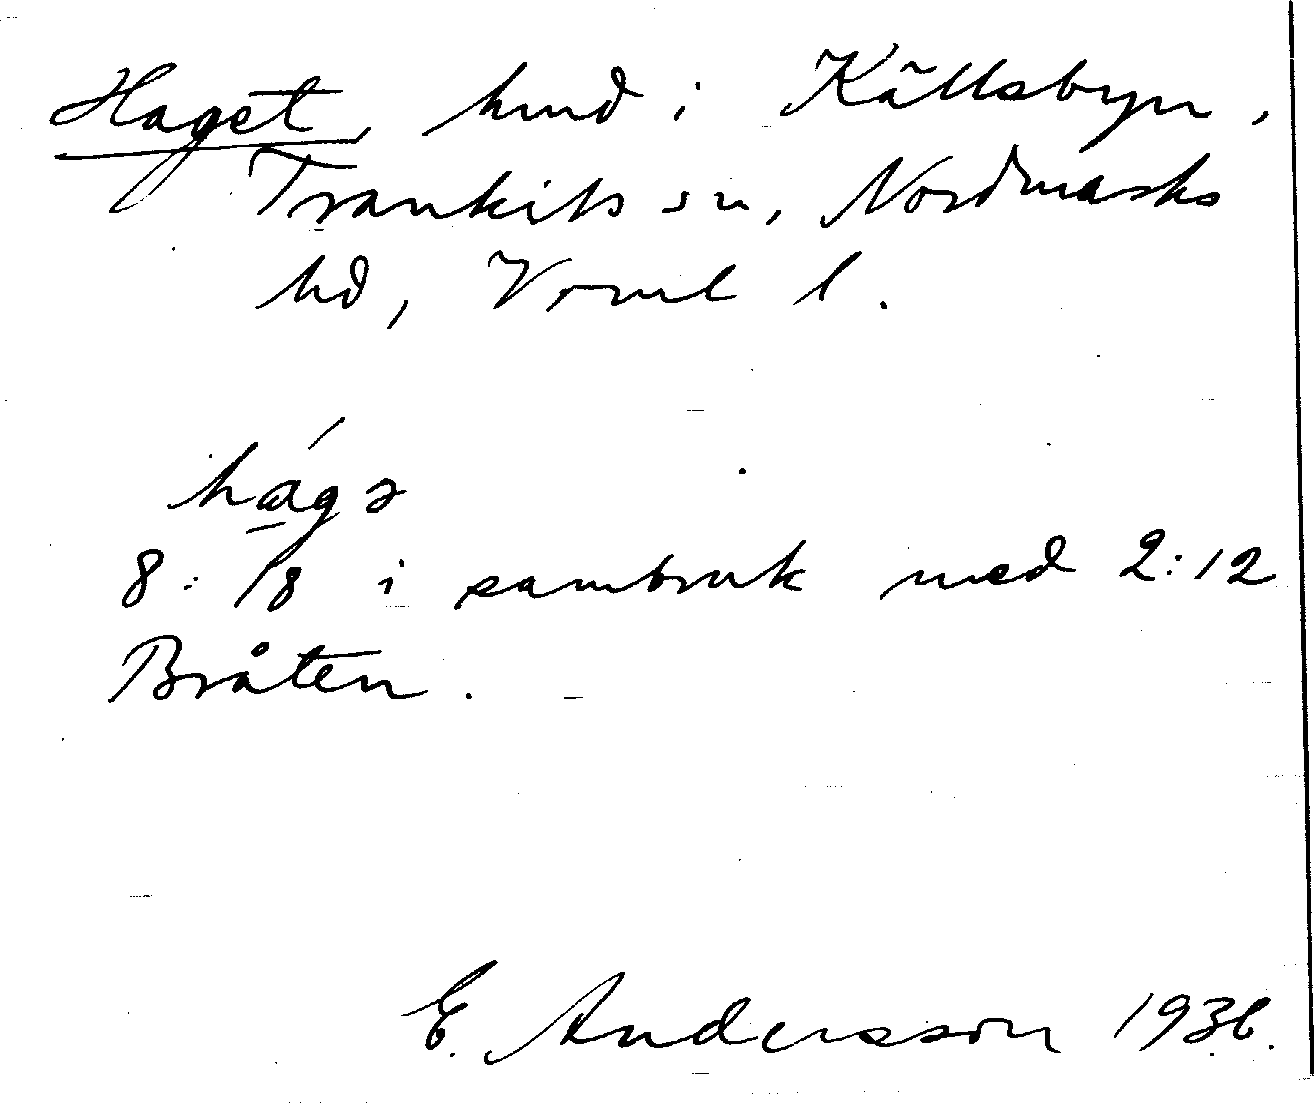 Haget, hmd i Källsbyn,
Trankils sn, Nordmarks
hd, Vrml l.
hágə
8:18 i sambruk med 2:12
Bråten.
E. Andersson 1936.